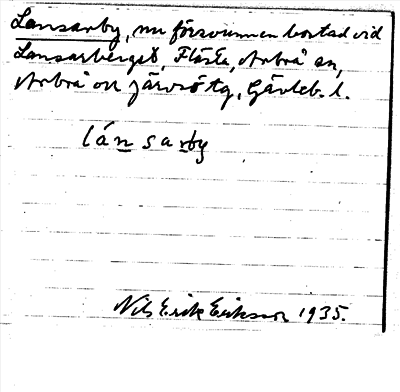 Lansarby, nu försvunnen bostad vid
Lansarberget, Flästa, Arbrå sn,
Arbrå o Järvsö tg, Gävleb. l.
lánsarby
Nils Erik Eriksson 1935.